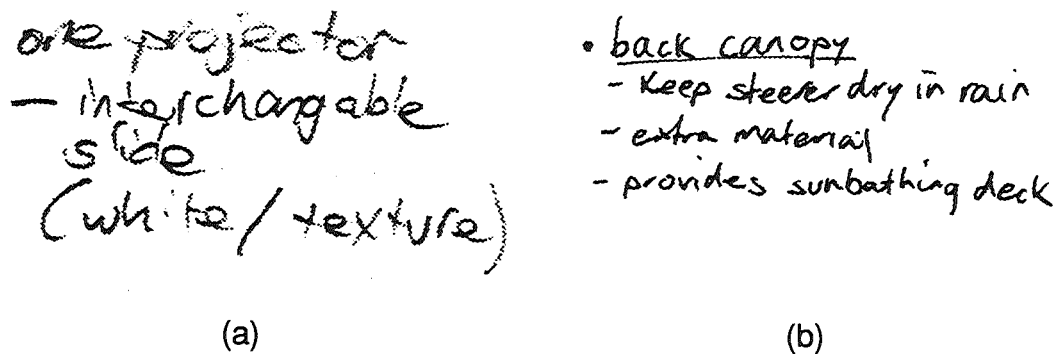 one projector
— interchangable
slide
(white / texture)
(a)
• back canopy
- Keep steerer dry in rain
- extra material
- provides sunbathing deck
(b)